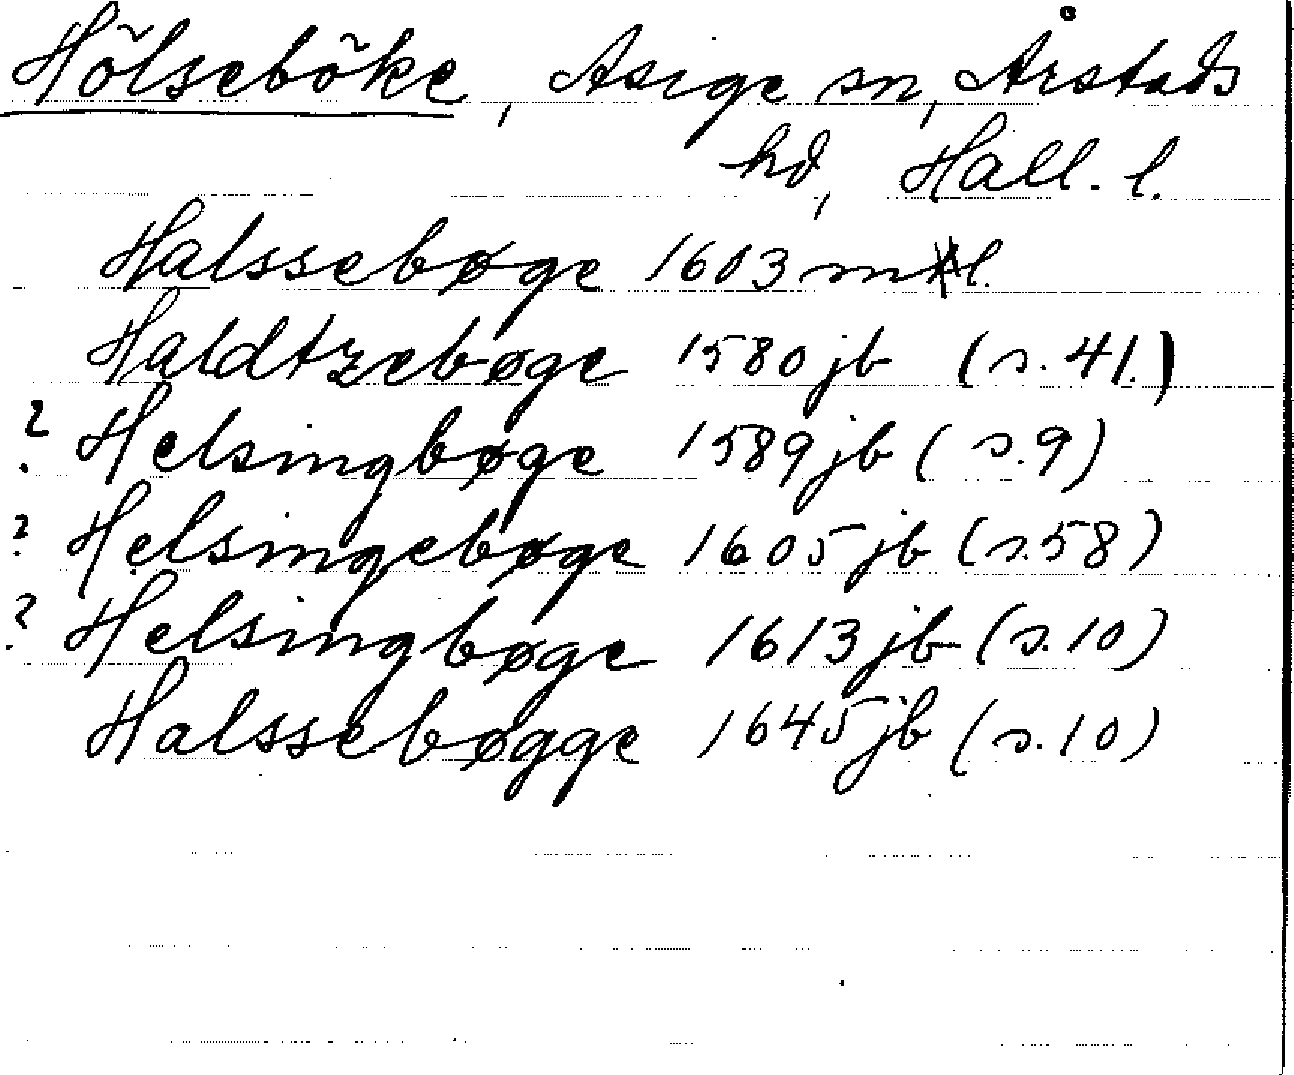 Hölseböke, Asige sn, Årstads
hd, Hall. l.
Halssebøge 1603 mtl.
Haldtzebøge 1580 jb (s. 41.)
? Helsingbøge 1589 jb (s. 9)
? Helsingebøge 1605 jb (s. 58)
? Helsingbøge 1613 jb (s. 10)
Halssebøgge 1645 jb (s. 10)